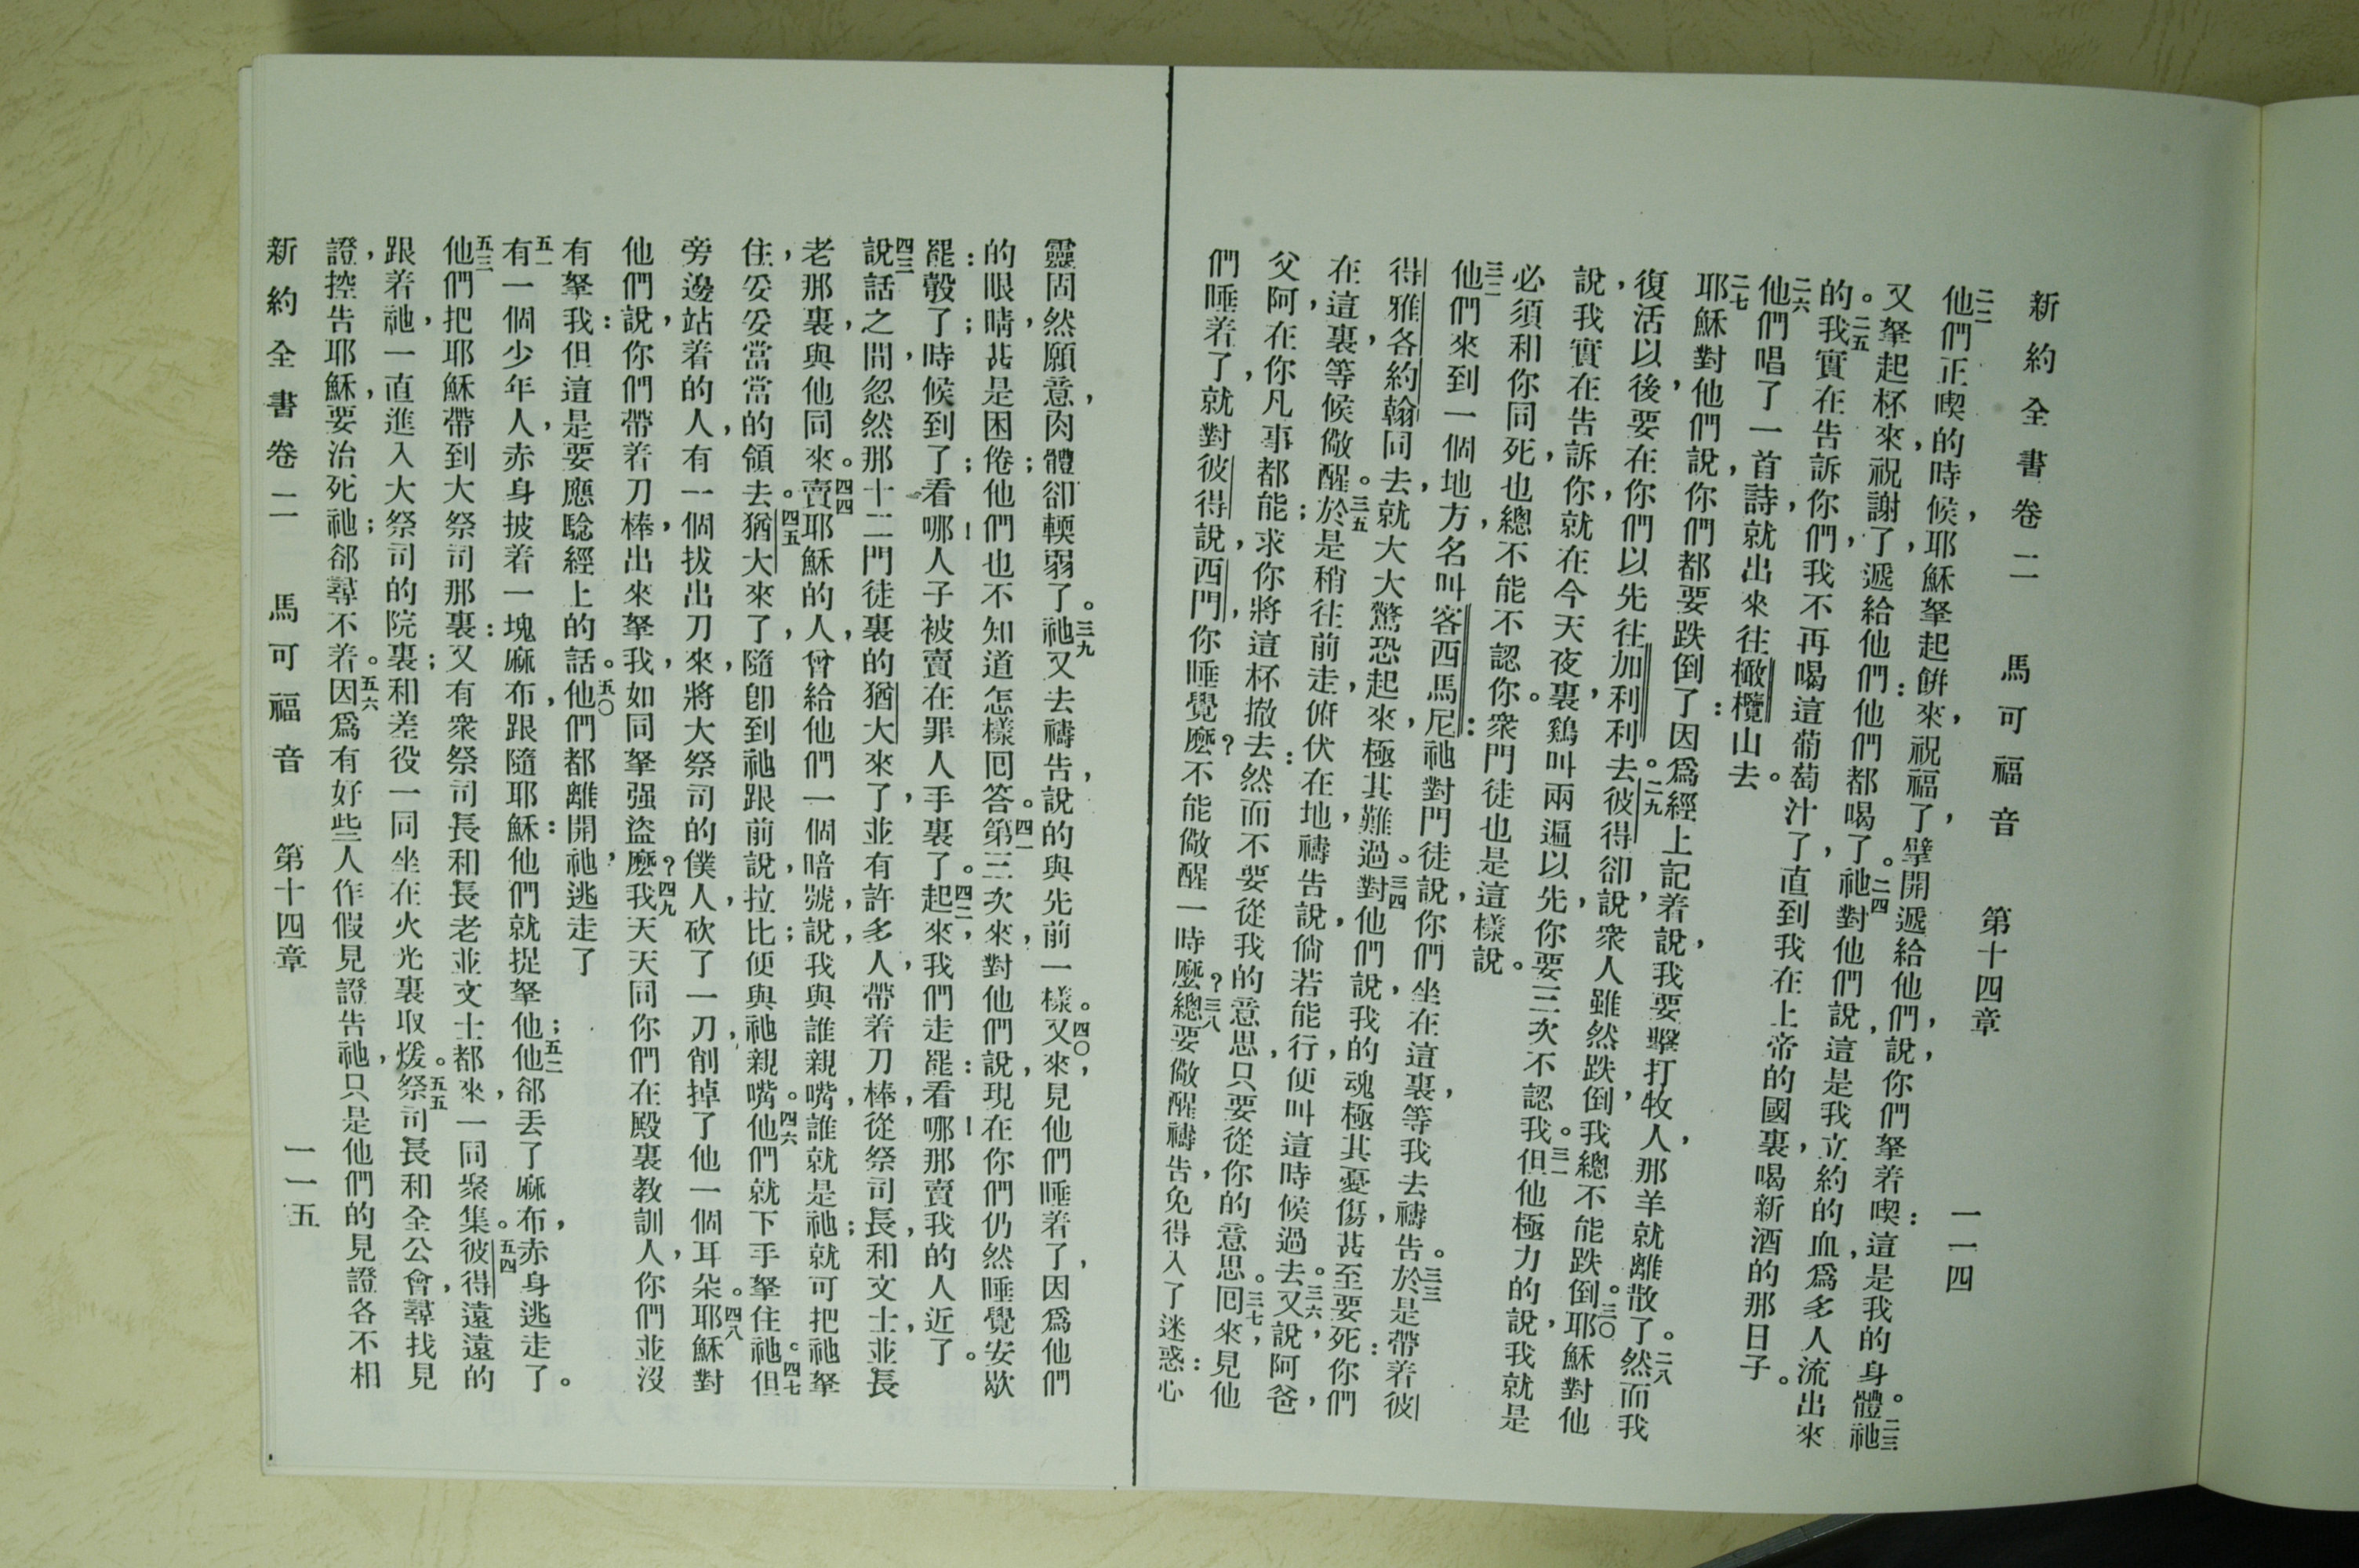 新約全書卷二 馬可福音 第十四章 一一四
二二他們正喫的時候，耶穌拏起餅來，祝福了，擘開遞給他們，說，你們拏着喫：這是我的身體。二三祂
又拏起杯來，祝謝了，遞給他們：他們都喝了。二四祂對他們說，這是我立約的血，爲多人流出來
的。二五我實在告訴你們，我不再喝這葡萄汁了，直到我在上帝的國裏，喝新酒的那日子。
二六他們唱了一首詩，就出來往橄欖山去。
二七耶穌對他們說，你們都要跌倒了：因爲經上記着說，我要擊打牧人，那羊就離散了。二八然而我
復活以後，要在你們以先往加利利去。二九彼得卻說，衆人雖然跌倒，我總不能跌倒。三〇耶穌對他
說，我實在告訴你，就在今天夜裏，鷄叫兩遍以先，你要三次不認我。三一但他極力的說，我就是
必須和你同死，也總不能不認你。衆門徒也是這樣說。
三二他們來到一個地方，名叫客西馬尼：祂對門徒說，你們坐在這裏，等我去禱告。三三於是帶着彼
得雅各約翰同去，就大大驚恐起來，極其難過。三四對他們說，我的魂極其憂傷，甚至要死：你們
在這裏，等候儆醒。三五於是稍往前走，俯伏在地，禱告說，倘若能行，便叫這時候過去。三六又說，阿爸，
父阿，在你凡事都能；求你將這杯撤去：然而不要從我的意思，只要從你的意思。三七回來，見他
們睡着了，就對彼得說，西門，你睡覺麽？不能儆醒一時麽？三八總要儆醒禱告，免得入了迷惑：心
靈固然願意，肉體卻輭弱了。三九祂又去禱告，說的與先前一樣。四〇又來，見他們睡着了，因爲他們
的眼睛，甚是困倦；他們也不知道怎樣回答。四一第三次來，對他們說，現在你們仍然睡覺安歇
罷：彀了；時候到了；看哪！人子被賣在罪人手裏了。四二起來，我們走罷：看哪！那賣我的人近了。
四三說話之間，忽然那十二門徒裏的猶大來了，並有許多人，帶着刀棒，從祭司長，和文士，並長
老那裏，與他同來。四四賣耶穌的人，曾給他們一個暗號，說，我與誰親嘴，誰就是祂；就可把祂拏
住，妥妥當當的領去。四五猶大來了，隨卽到祂跟前說，拉比；便與祂親嘴。四六他們就下手拏住祂。四七但
旁邊站着的人，有一個拔出刀來，將大祭司的僕人，砍了一刀，削掉了他一個耳朵。四八耶穌對
他們說，你們帶着刀棒，出來拏我，如同拏强盜麽？四九我天天同你們在殿裏教訓人，你們並沒
有拏我：但這是要應驗經上的話。五〇他們都離開祂，逃走了
五一有一個少年人，赤身披着一塊麻布，跟隨耶穌：他們就捉拏他；五二他郤丟了麻布，赤身逃走了。
五三他們把耶穌帶到大祭司那裏：又有衆祭司長和長老並文士都來，一同聚集。五四彼得遠遠的
跟着祂，一直進入大祭司的院裏；和差役一同坐在火光裏取煖。五五祭司長和全公會，尋找見
證，控告耶穌，要治死祂；郤尋不着。五六因爲有好些人作假見證告祂，只是他們的見證各不相
新約全書卷二 馬可福音 第十四章 一一五